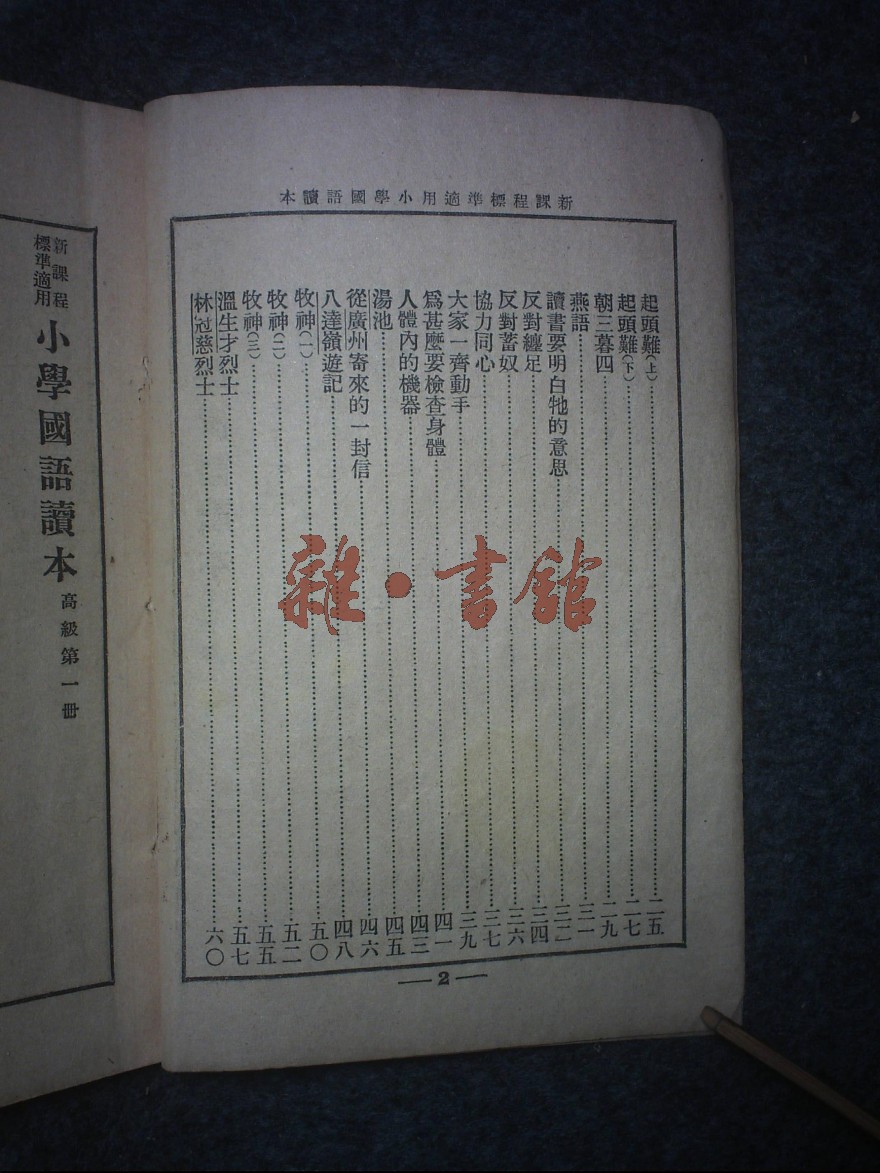 新課程標準適用小學國語讀本
起頭難(上)……二五
起頭難(下)……二七
朝三暮四……二九
燕語……三一
讀書要明白牠的意思……三二
反對纏足……三四
反對蓄奴……三六
協力同心……三七
大家一齊動手……三九
爲甚麼要檢查身體……四一
人體內的機器……四三
湯池……四五
從廣州寄來的一封信……四六
八達嶺遊記……四八
牧神(一)……五〇
牧神(二)……五二
牧神(三)……五五
溫生才烈士……五七
林冠慈烈士……六〇
—2—
新課程
標準適用
小學國語讀本
高級第一冊
雜·書館